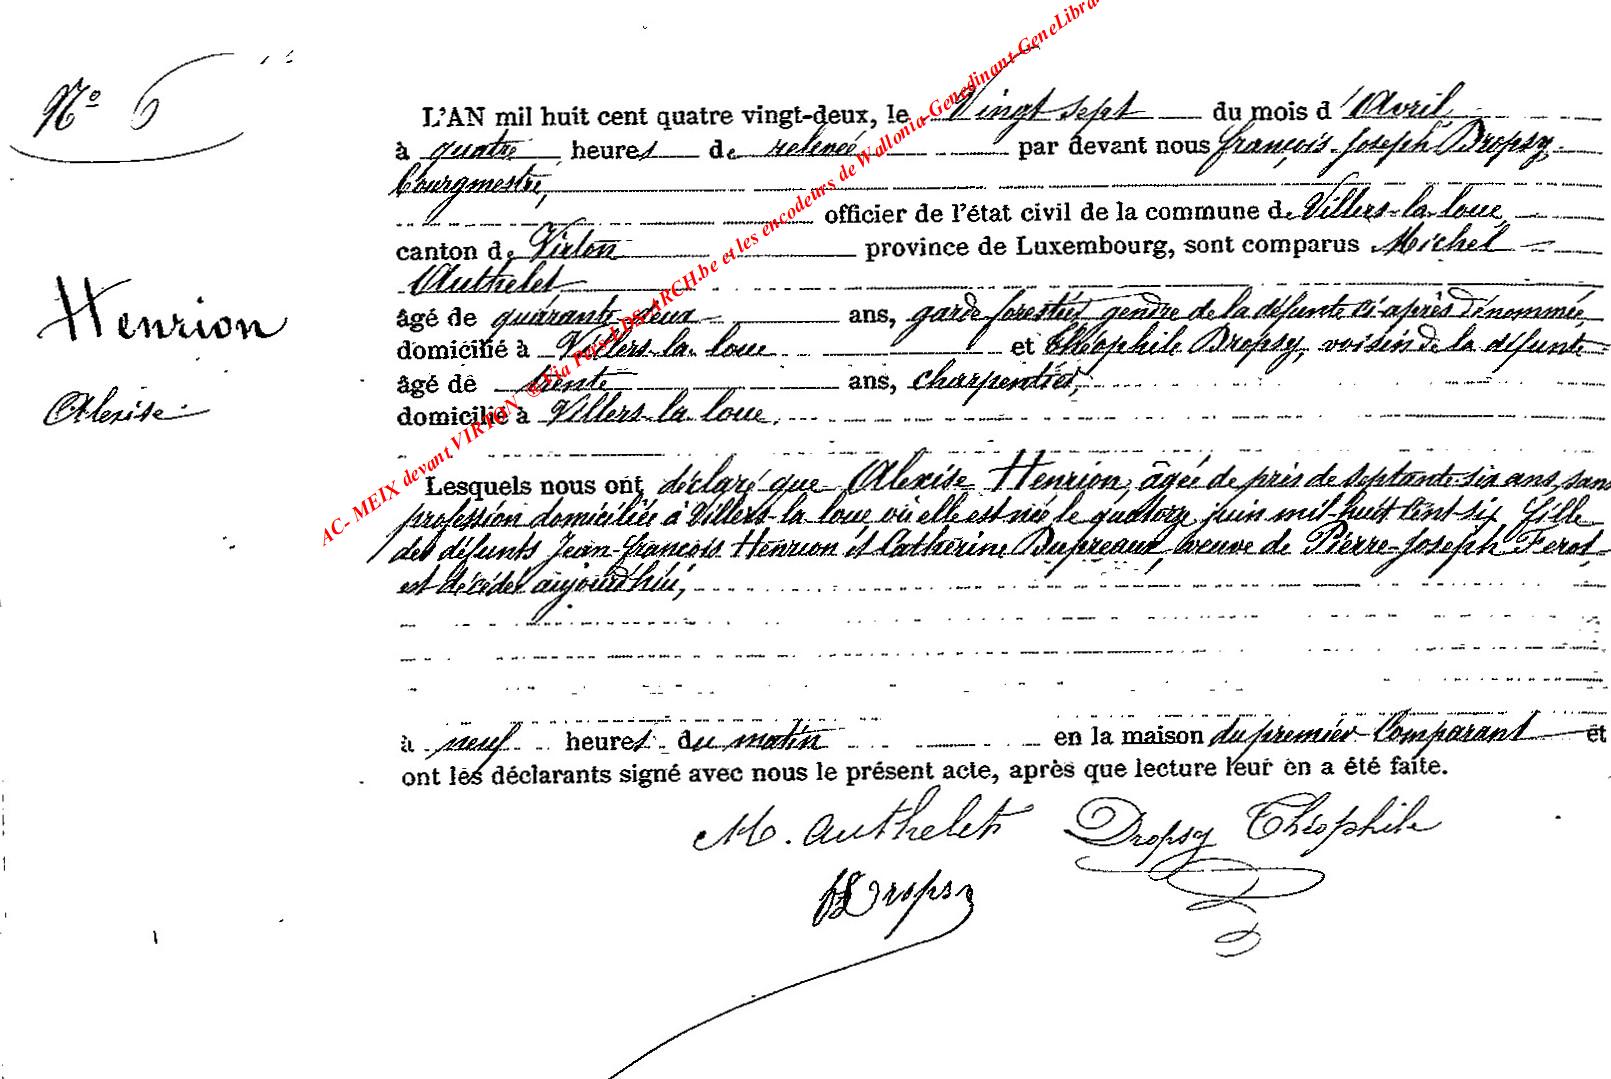 Nº 6
Henrion
Alexise
L'AN mil huit cent quatre vingt-deux, le Vingt sept du mois d'Avril
à quatre heures de relevée par devant nous françois-Joseph Dropsy
bourgmestre,
officier de l'état civil de la commune de Villers-la-loue,
canton de Virton province de Luxembourg, sont comparus Michel
Authelet
âgé de quarante-deux ans, garde forestier, gendre de la défunte ci-après dénommée,
domicilié à Villers-la-loue et Théophile Dropsy, voisin de la défunte
âgé de trente ans, charpentier,
domicilié à Villers-la-loue,
Lesquels nous ont déclaré que Alexise Henrion, âgée de près de septante-six ans, sans
profession domiciliée à Villers-la-loue où elle est née le quatorze juin mil-huit-cent-six, fille
des défunts Jean-françois Henrion et Catherine Dupreaux, veuve de Pierre-Joseph Ferot
est décédée aujourd'hui,
à neuf heures du matin en la maison du premier Comparant et
ont les déclarants signé avec nous le présent acte, après que lecture leur en a été faite.
M. Authelet Dropsy Théophile
Dropsy
AC- MEIX devant VIRTON © Via Pers-LDS-ARCH.be et les encodeurs de Wallonia-Genedinant-GeneLibra